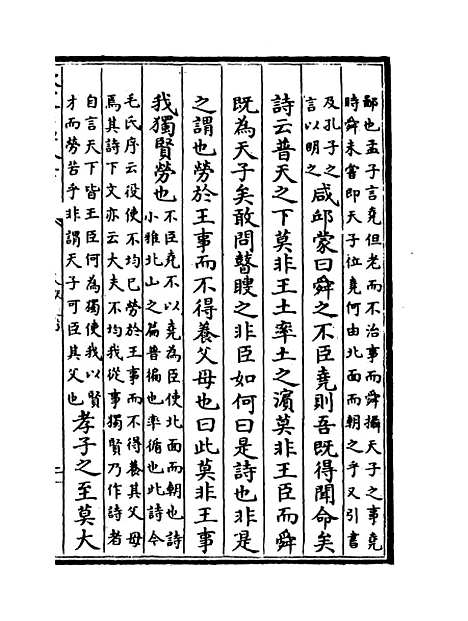 鄙也孟子言堯但老而不治事而舜攝天子之事堯
時舜未嘗即天子位堯何由北面而朝之乎又引書
及孔子之
言以明之
咸邱蒙曰舜之不臣堯則吾既得聞命矣
詩云普天之下莫非王土率土之濱莫非王臣而舜
既為天子矣敢問瞽瞍之非臣如何曰是詩也非是
之謂也勞於王事而不得養父母也曰此莫非王事
我獨賢勞也
不臣堯不以堯為臣使北面而朝也詩
小雅北山之篇普徧也率循也此詩今
毛氏序云役使不均已勞於王事而不得養其父母
焉其詩下文亦云大夫不均我從事獨賢乃作詩者
自言天下皆王臣何為獨使我以賢
才而勞苦乎非謂天子可臣其父也
孝子之至莫大